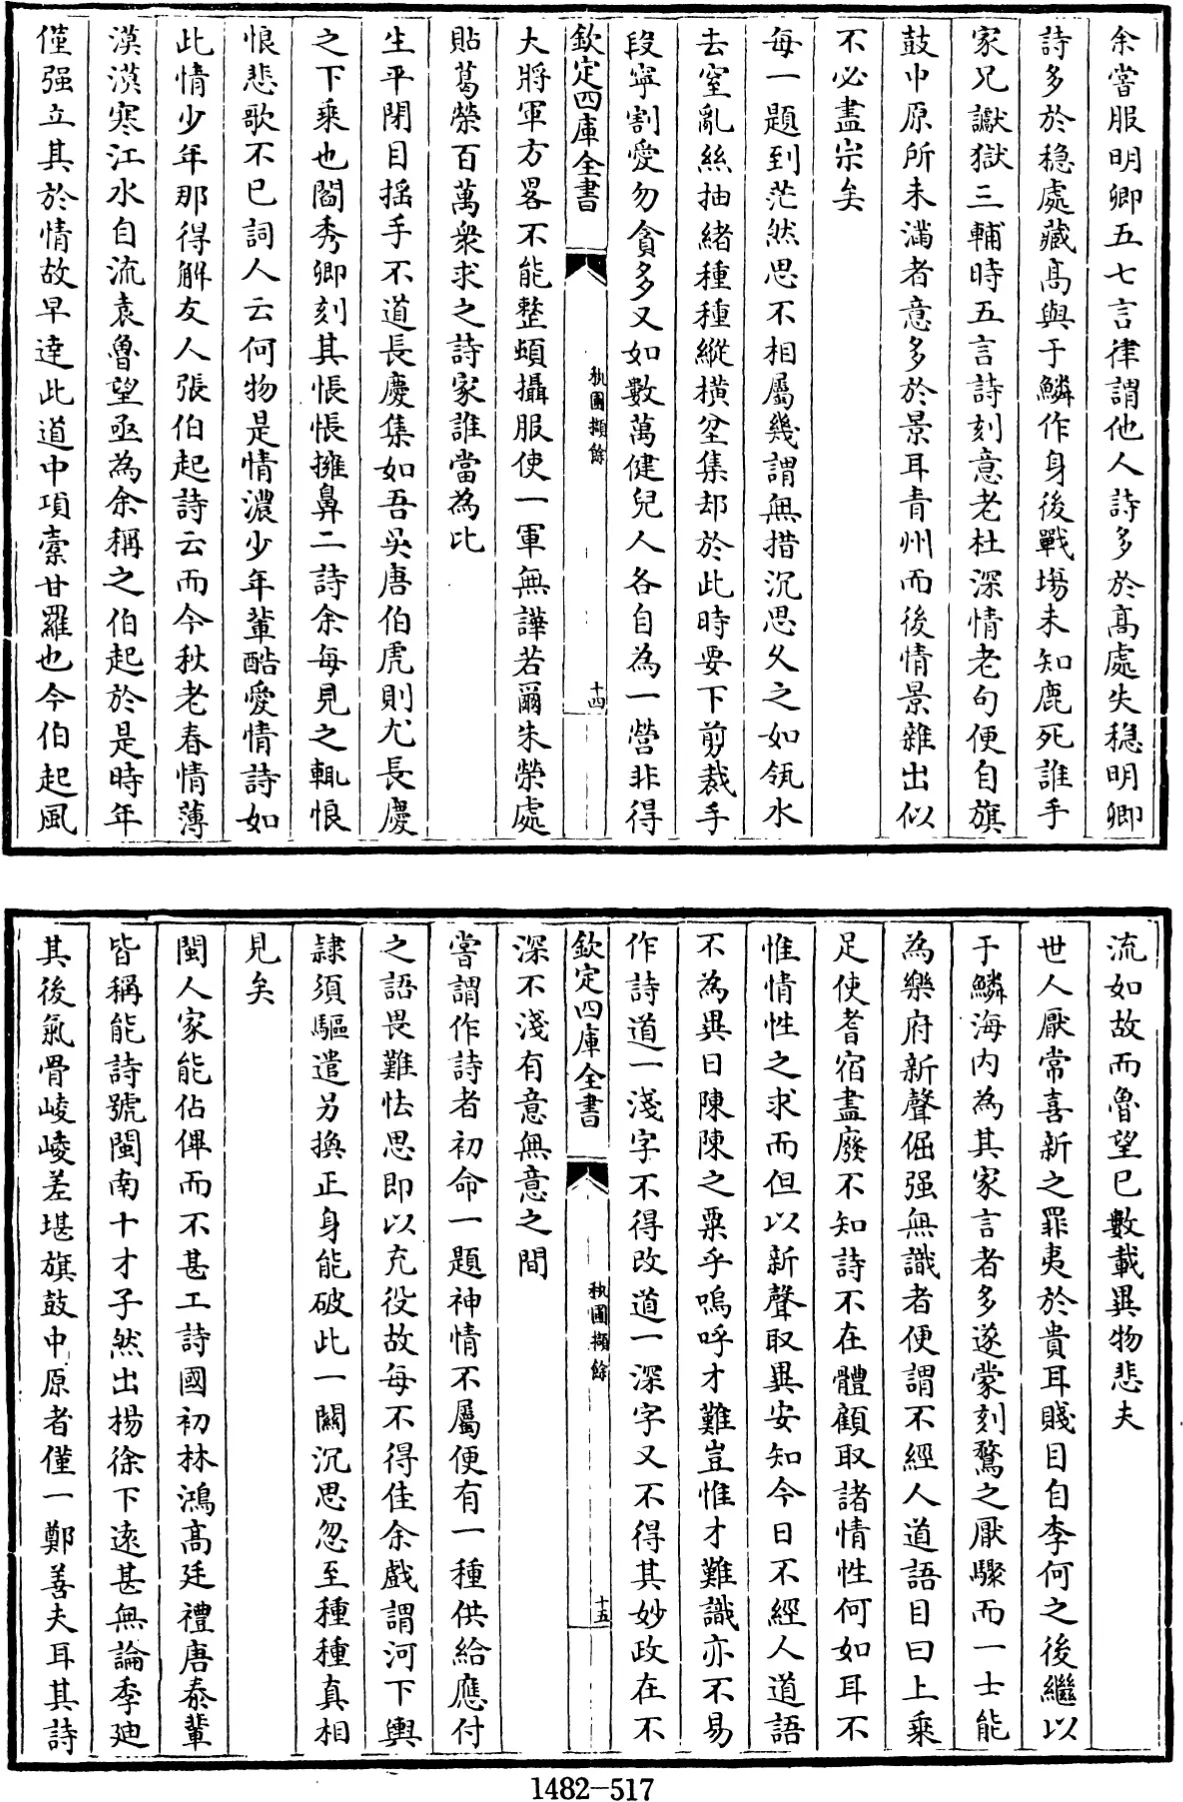 余嘗服明卿五七言律謂他人詩多於高處失穩明卿
詩多於穏處藏高與于鱗作身後戰塲未知鹿死誰手
家兄讞獄三輔時五言詩刻意老杜深情老句便自旗
鼓中原所未滿者意多於景耳青州而後情景雜出似
不必盡宗矣
每一題到茫然思不相屬幾謂無措沉思久之如瓴水
去窒亂絲抽緒種種縱横坌集却於此時要下剪裁手
段寜割愛勿貪多又如數萬健兒人各自為一營非得
欽定四庫全書
秇圃擷餘
十四
大將軍方畧不能整頓攝服使一軍無譁若爾朱榮處
貼葛榮百萬衆求之詩家誰當為比
生平閉目揺手不道長慶集如吾吳唐伯虎則尤長慶
之下乘也閻秀卿刻其悵悵擁鼻二詩余每見之輒恨
恨悲歌不已詞人云何物是情濃少年輩酷愛情詩如
此情少年那得解友人張伯起詩云而今秋老春情薄
漠漠寒江水自流袁魯望亟為余稱之伯起於是時年
僅强立其於情故早逹此道中項槖甘羅也今伯起風
流如故而魯望已數載異物悲夫
世人厭常喜新之罪夷於貴耳賤目自李何之後繼以
于鱗海内為其家言者多遂蒙刻鶩之厭驟而一士能
為樂府新聲倔强無識者便謂不經人道語目曰上乘
足使耆宿盡廢不知詩不在體顧取諸情性何如耳不
惟情性之求而但以新聲取異安知今日不經人道語
不為異日陳陳之粟乎嗚呼才難豈惟才難識亦不易
作詩道一淺字不得改道一深字又不得其妙政在不
欽定四庫全書
秇圃擷餘
十五
深不淺有意無意之間
嘗謂作詩者初命一題神情不屬便有一種供給應付
之語畏難怯思即以充役故每不得佳余戲謂河下輿
隷須驅遣另換正身能破此一闗沉思忽至種種真相
見矣
閩人家能佔俾而不甚工詩國初林鴻高廷禮唐泰輩
皆稱能詩號閩南十才子然出楊徐下逺甚無論季廸
其後氣骨崚崚差堪旗鼓中原者僅一鄭善夫耳其詩
1482-517